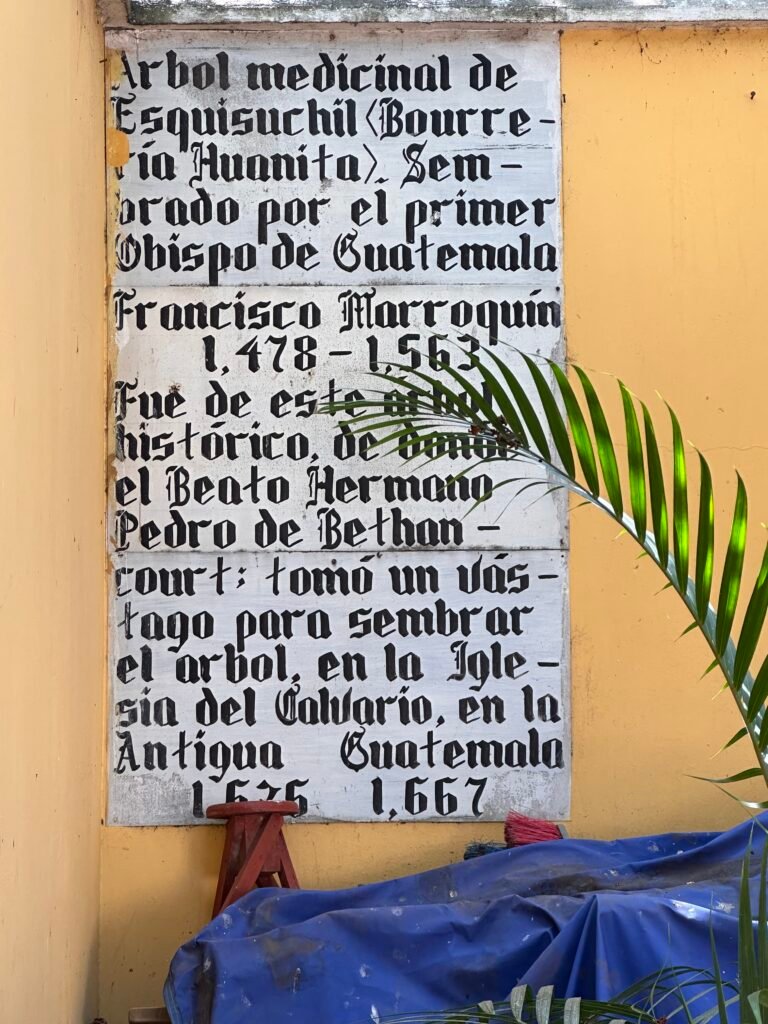 Arbol medicinal de
Esquisuchil (Bourre-
ria Huanita). Sem-
brado por el primer
Obispo de Guatemala
Francisco Marroquín
1,478 - 1,563
Fué de este arbol
histórico, de donde
el Beato Hermano
Pedro de Bethan-
court; tomó un vás-
tago para sembrar
el arbol, en la Igle-
sia del Calvario, en la
Antigua Guatemala
1,667